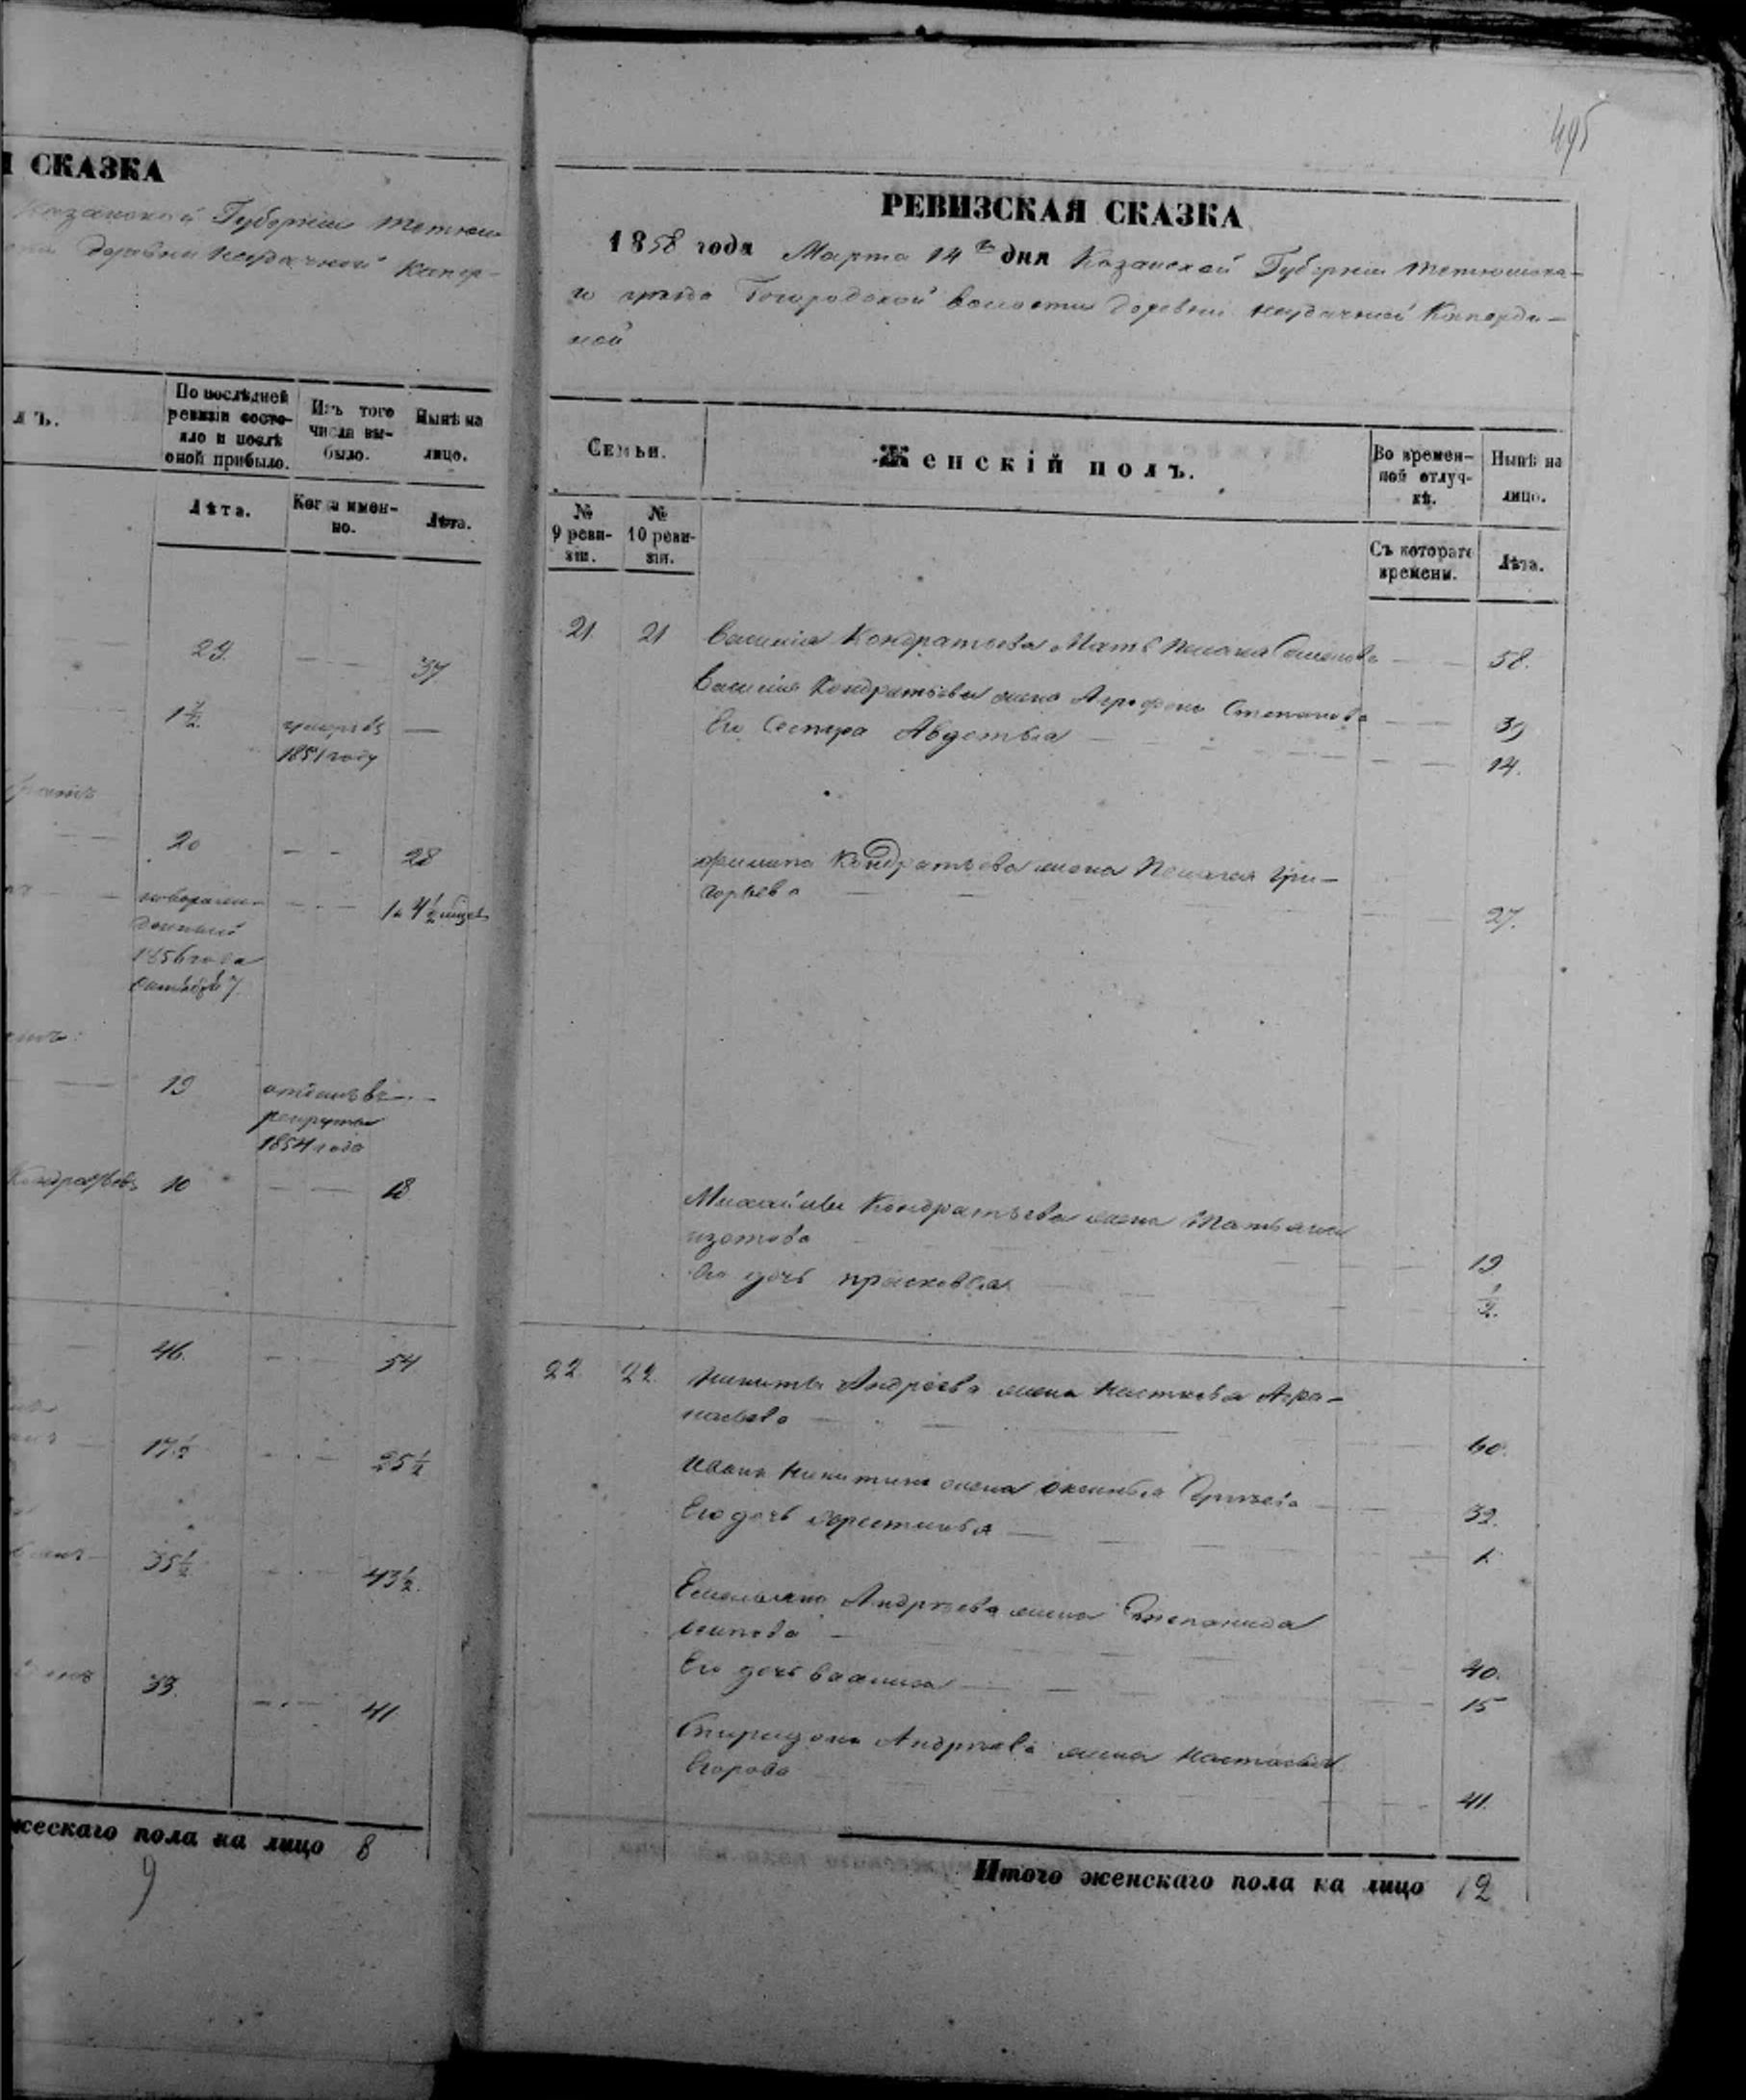 495
СКАЗКА
Казанской Губернiи Тетюш-
деревни Неудачной Капер-
лъ.
По послѣдней ревизіи состо-яло и послѣ оной прибыло.
Изъ того числа вы-было.
Нынѣ на лицо.
Лѣта.
Когда имен-но.
Лѣта.
29. — 37
1 1/2. умеръ въ 1851 году —
20 — 28
новорожден-
1 и 4 1/2 мѣсяц
1856 года
Октября 7
19
рекруты
1854 года
Кондратьевъ 10 — 18
46. — 54
17 1/2 — 25 1/2
35 1/2 — 43 1/2.
33. — 41
жескаго пола на лицо 8
9
РЕВИЗСКАЯ СКАЗКА
1858 года Марта 14 дня Казанской Губернiи Тетюшска-
го уѣзда Богородской волости деревни Неудачной Каперди-
ной
Семьи.
Женскій полъ.
Во времен-ной отлуч-кѣ.
Нынѣ на лицо.
№ 9 реви-зіи.
№ 10 реви-зіи.
Съ котораго времени.
Лѣта.
21 21 Василія Кондратьева Мать Семенова — 58.
Василія Кондратьева жена Агрофена Степанова — 39
Его Сестра Авдотья — 14.
Филипа Кондратьева жена Пелагея Гри-
горьева — 27.
Михайлы Кондратьева жена Татьяна
Изотова — 19
Его дочь Прасковья — 1/2.
22. 22. Никиты Андреева жена Настасья Афа-
насьева — 60.
Ивана Никитина жена Оксинья — 32.
Его дочь Фристинья — 1.
Емельяна Андреева жена Степанида
Осипова — 40.
Его дочь — 15
Спиридона Андреева жена Настасья
Егорова — 41.
Итого женскаго пола на лицо 12